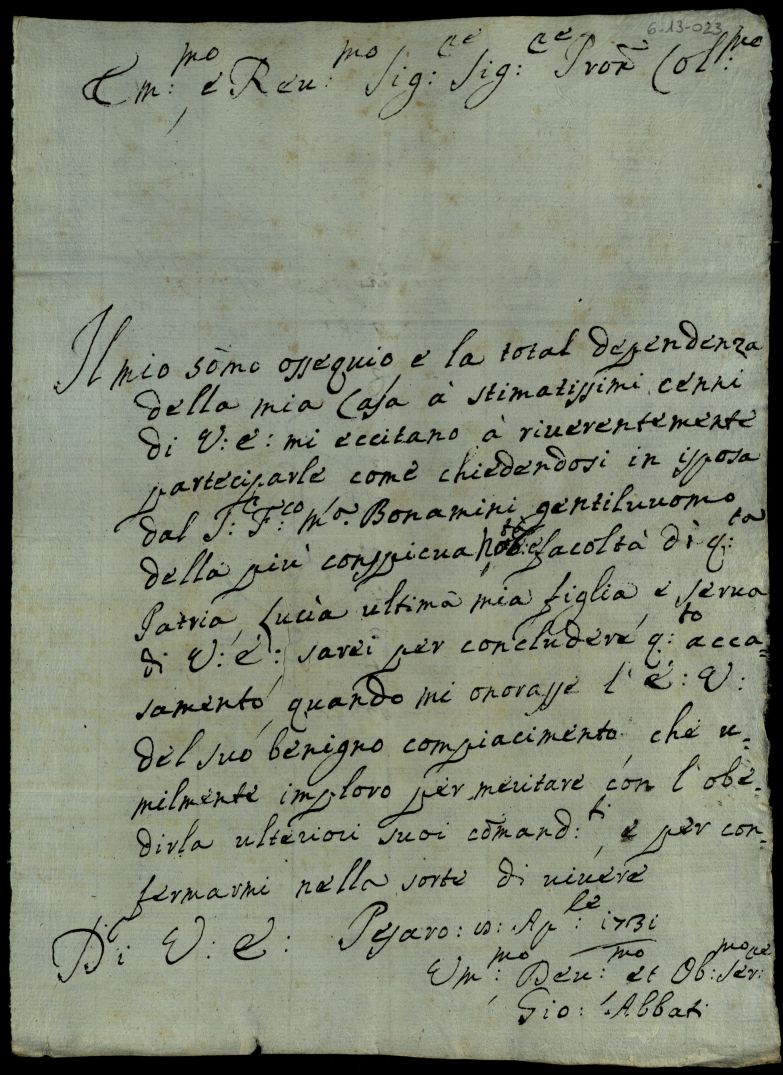 6-13-023
Em:mo e Reu:mo Sig:re Sig:re Pron Col:mo
Il mio sōmo ossequio e la total dependenza
della mia Casa à stimatissimi cenni
di V: e: mi eccitano à riuerentemente
participarle come chiedendosi in isposa
dal S:e F:co Ma. Bonamini gentiluuomo
della più conspicua facoltà di q:ta
Patria, Lucia ultima mia figlia e serua
di V: e: sarei per concludere q:to acca=
samento, quando mi onorasse l' e: V:
del suo benigno compiacimento che u=
milmente imploro per meritare con l' obe=
dirla ulteriori suoi cōmand:ti, e per con=
fermarmi nella sorte di uiuere
Di V: e: Pesaro: Ap:le 1731
Vm:mo Deu:mo et Ob:mo Ser:re
Gio: Abbati